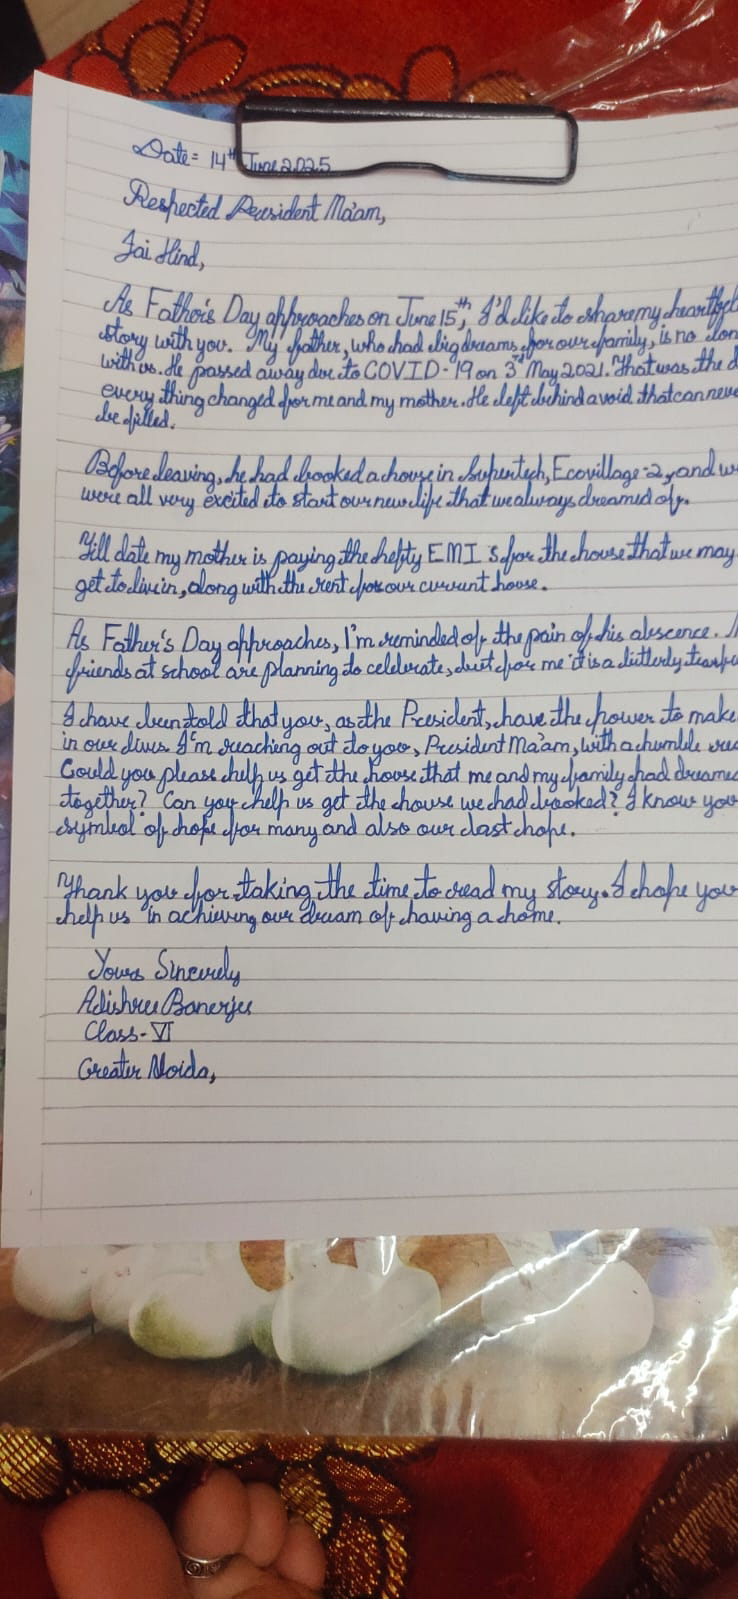 Date= 14th June 2025
Respected President Ma'am,
Jai Hind,
As Father's Day approaches on June 15th, I'd like to share my heartfel
story with you. My father, who had big dreams for our family, is no
with us. He passed away due to COVID-19 on 3rd May 2021. That was the d
every thing changed for me and my mother. He left behind a void that can neve
be filled.
Before leaving, he had booked a house in Supertech, Ecovillage-2, and w
were all very excited to start our new life that we always dreamed of.
Till date my mother is paying the hefty EMI's for the house that we may
get to live in, along with the rent for our current house.
As Father's Day approaches, I'm reminded of the pain of his abscence.
friends at school are planning to celebrate, but for me it is a
I have been told that you, as the President, have the power to make
in our lives. I'm reaching out to you, President Ma'am, with a humble
Could you please help us get the house that me and my family had dreame
together? Can you help us get the house we had booked? I know you
symbol of hope for many and also our last hope.
Thank you for taking the time to read my story. I hope you
help us in achieving our dream of having a home.
Yours Sincerely
Adishree Banerjee
Class-VI
Greater Noida,